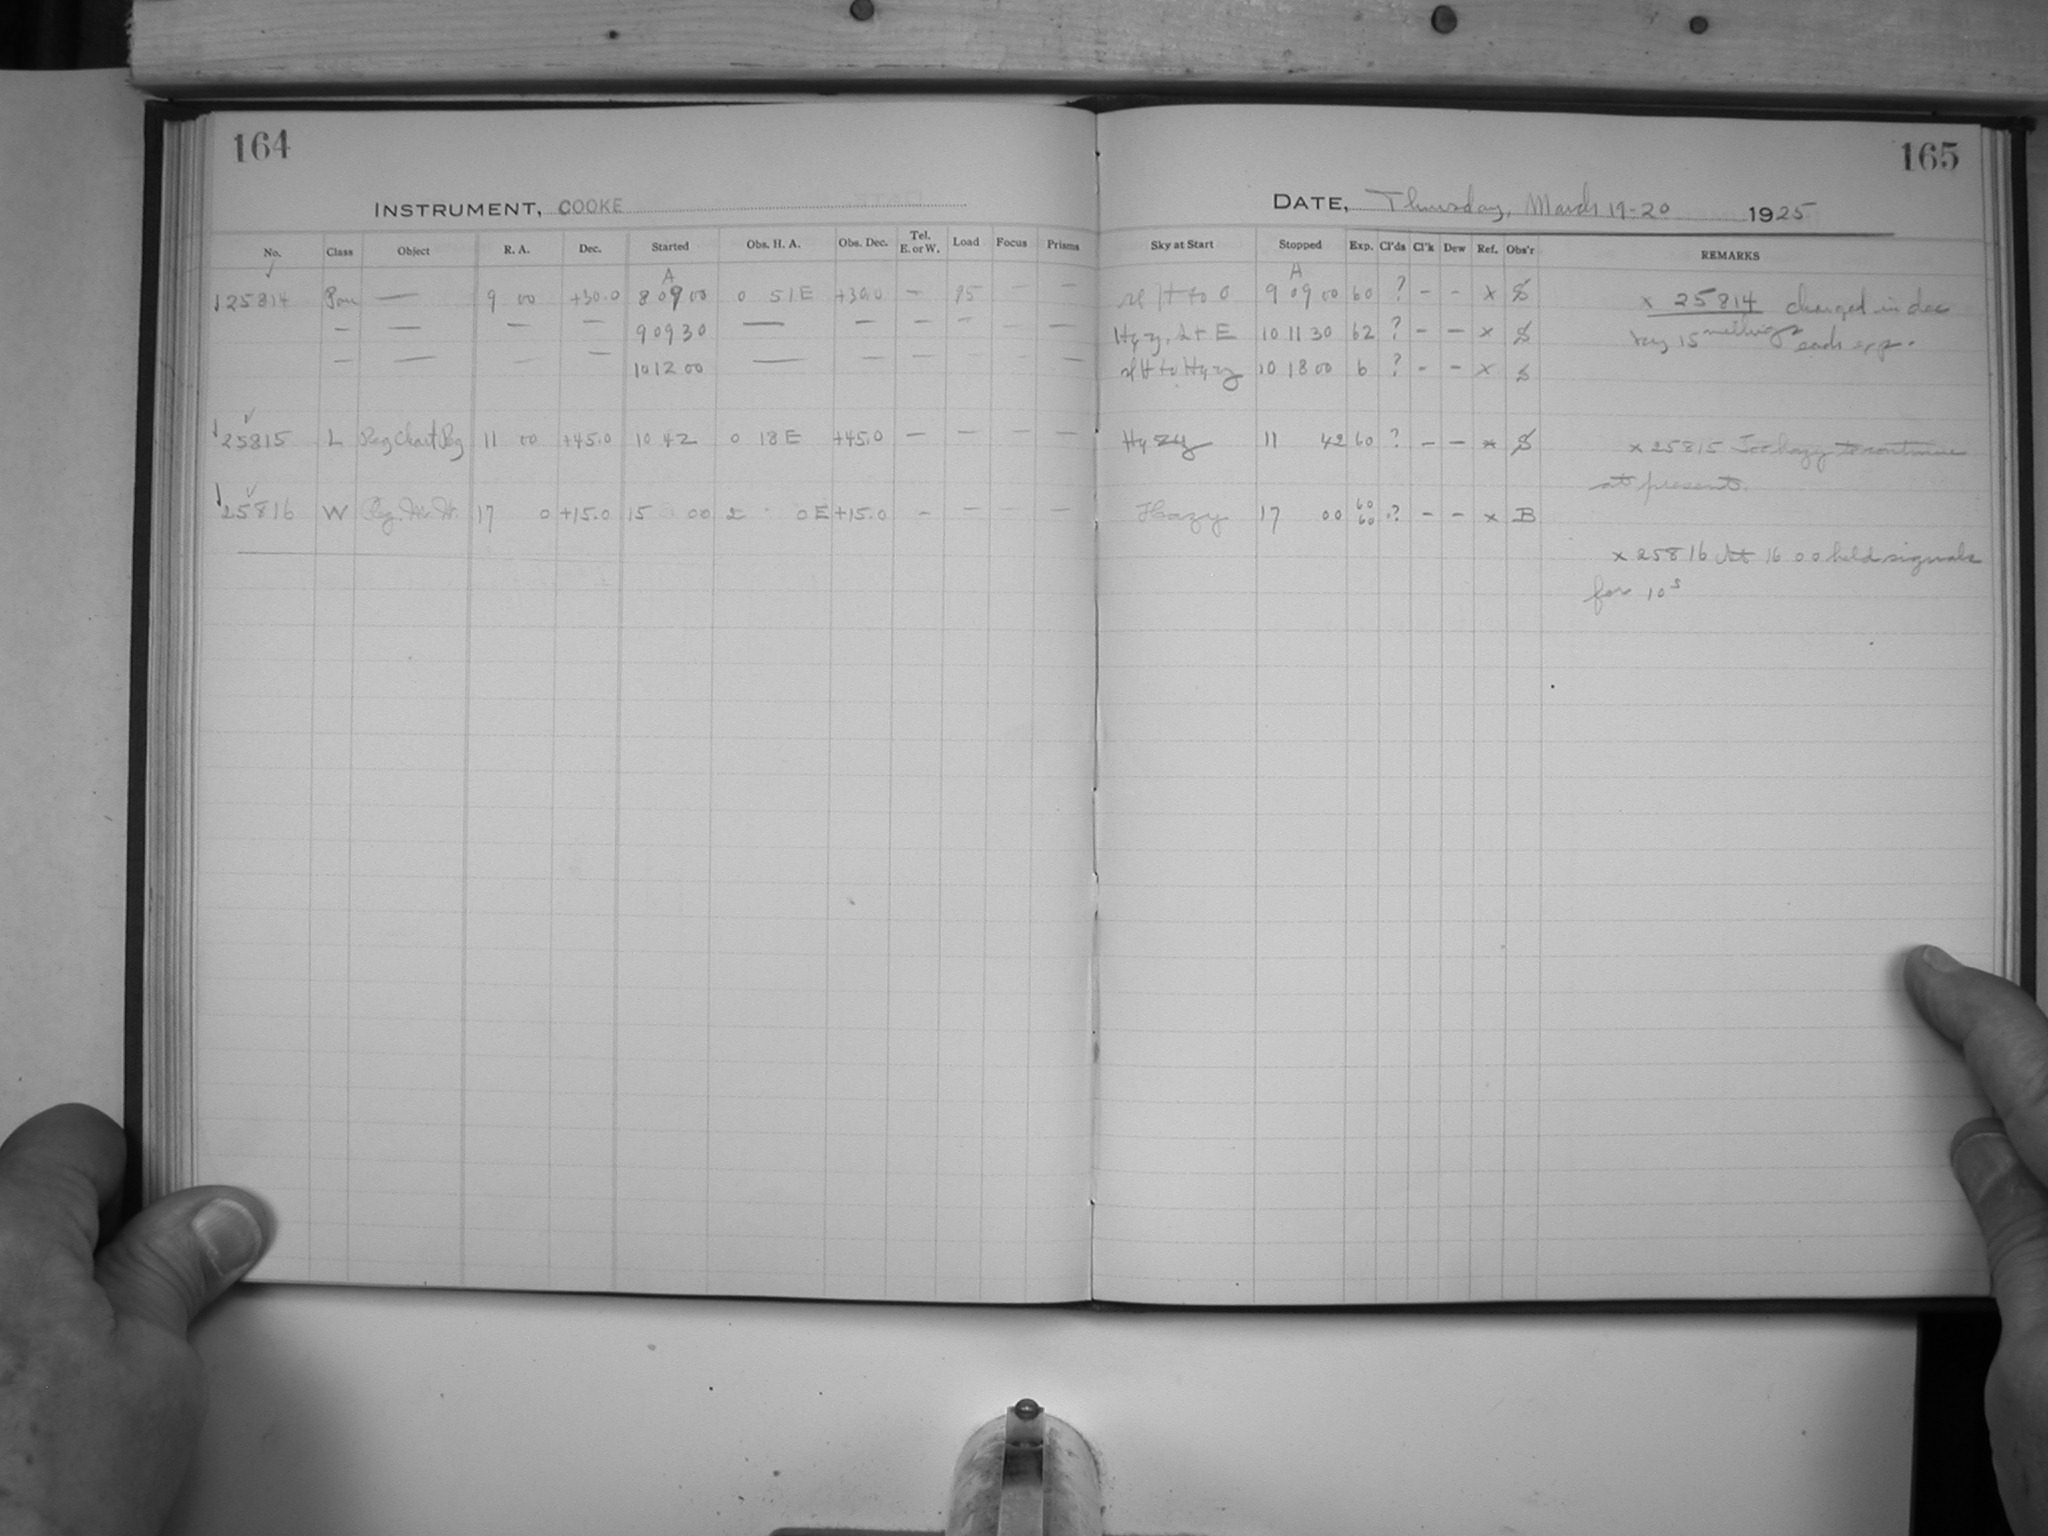 164
INSTRUMENT, COOKE
No. Class Object R. A. Dec. Started Obs. H. A. Obs. Dec. Tel. E. or W. Load Focus Prisms
A
25814 — 9 00 +30.0 8 09 00 0 51E +30.0 — — —
— — — — 9 09 30 — — — — — —
— — — — 10 12 00 — — — — — —
25815 L Reg Chart Rg 11 00 +45.0 10 42 0 18 E +45.0 — — — —
25816 W Rg. M. W. 17 0 +15.0 15 00 2 0 E +15.0 — — — —
165
DATE, Thursday, March 19-20 1925
Sky at Start Stopped Exp. Cl'ds Cl'k Dew Ref. Obs'r REMARKS
A
9 09 00 60 ? - - x S x 25814 changed in dec
E 10 11 30 62 ? - - x S by 15 each exp.
10 18 00 6 ? - - x S
Hazy 11 42 60 ? - - x S x 25815 Too hazy to continue
at present.
Hazy 17 00 60 60 ? - - x B
x 25816 At 16 00 held signals
for 10s